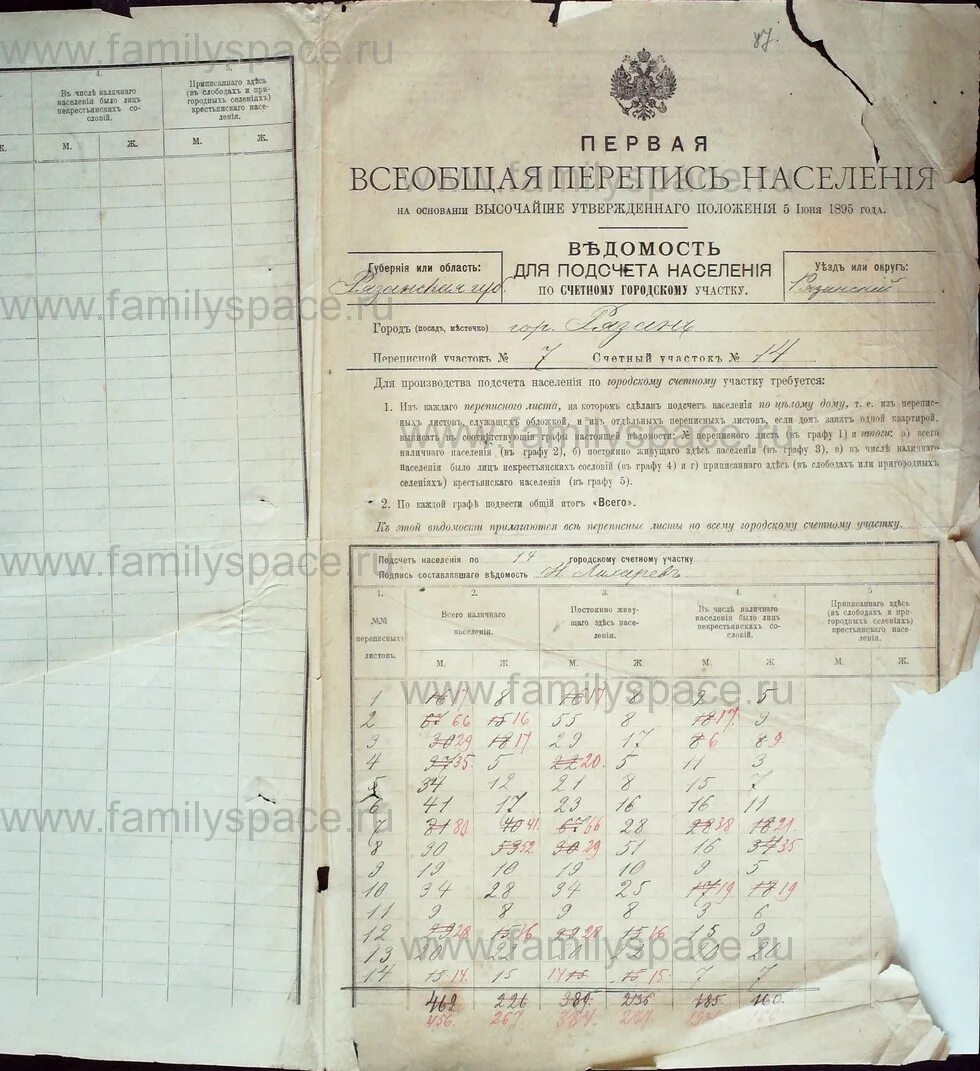 87.
4.
5.
Въ числѣ наличнаго
населенія было лицъ
некрестьянскихъ со-
словій.
Приписаннаго здѣсь
(въ слободахъ и при-
городныхъ селеніяхъ)
крестьянскаго насе-
ленія.
Ж. М. Ж. М. Ж.
ПЕРВАЯ
ВСЕОБЩАЯ ПЕРЕПИСЬ НАСЕЛЕНІЯ
НА ОСНОВАНІИ ВЫСОЧАЙШЕ УТВЕРЖДЕННАГО ПОЛОЖЕНІЯ 5 Іюня 1895 года.
ВѢДОМОСТЬ
ДЛЯ ПОДСЧЕТА НАСЕЛЕНІЯ
ПО СЧЕТНОМУ ГОРОДСКОМУ УЧАСТКУ.
Губернія или область:
Рязанская губ.
Уѣздъ или округъ:
Рязанскій.
Городъ (посад, мѣстечко) гор. Рязань
Переписной участокъ № 7 Счетный участокъ № 14
Для производства подсчета населенія по городскому счетному участку требуется:
1. Изъ каждаго переписного листа, на которомъ сдѣланъ подсчетъ населенія по цѣлому дому, т. е. изъ перепис-
ныхъ листовъ, служащихъ обложкой, и изъ отдѣльныхъ переписныхъ листовъ, если домъ занятъ одной квартирой,
выписать въ соотвѣтствующія графы настоящей вѣдомости: № переписного листа (въ графу 1) и итоги: а) всего
наличнаго населенія (въ графу 2), б) постоянно живущаго здѣсь населенія (въ графу 3), в) въ числѣ наличнаго
населенія было лицъ некрестьянскихъ сословій (въ графу 4) и г) приписаннаго здѣсь (въ слободахъ или пригородныхъ
селеніяхъ) крестьянскаго населенія (въ графу 5).
2. По каждой графѣ подвести общій итогъ «Всего».
Къ этой вѣдомости прилагаются всѣ переписные листы по всему городскому счетному участку.
Подсчетъ населенія по 14 городскому счетному участку
Подпись составлявшаго вѣдомость Н Лихаревъ
1. 2. 3. 4. 5
№№
переписныхъ
листовъ.
Всего наличнаго
населенія.
Постоянно живу-
щаго здѣсь насе-
ленія.
Въ числѣ наличнаго
населенія было лицъ
некрестьянскихъ со-
словій.
Приписаннаго здѣсь
(въ слободахъ и при-
городныхъ селеніяхъ)
крестьянскаго насе-
ленія.
М. Ж. М. Ж. М. Ж. М. Ж.
1 16 17 8 16 17 8 9 5
2 67 66 15 16 55 8 18 17 9
3 30 29 18 17 29 17 8 6 8 9
4 35 5 22 20 5 11 3
5 34 12 21 8 15 7
6 41 17 23 16 16 11
7 81 80 40 41 67 66 28 28 38 18 21
8 30 52 30 29 51 16 35
9 19 10 19 10 9 5
10 34 28 34 25 17 19 18 19
11 9 8 9 8 3 6
12 28 15 16 28 15 16 15 9
13
14 15 14 15 14 15 15 15 7 7
462 226 389 236 185 160
456. 267. 384. 237.
www.familyspace.ru
www.familyspace.ru
www.familyspace.ru
www.familyspace.ru
www.familyspace.ru
www.familyspace.ru
www.familyspace.ru
www.familyspace.ru